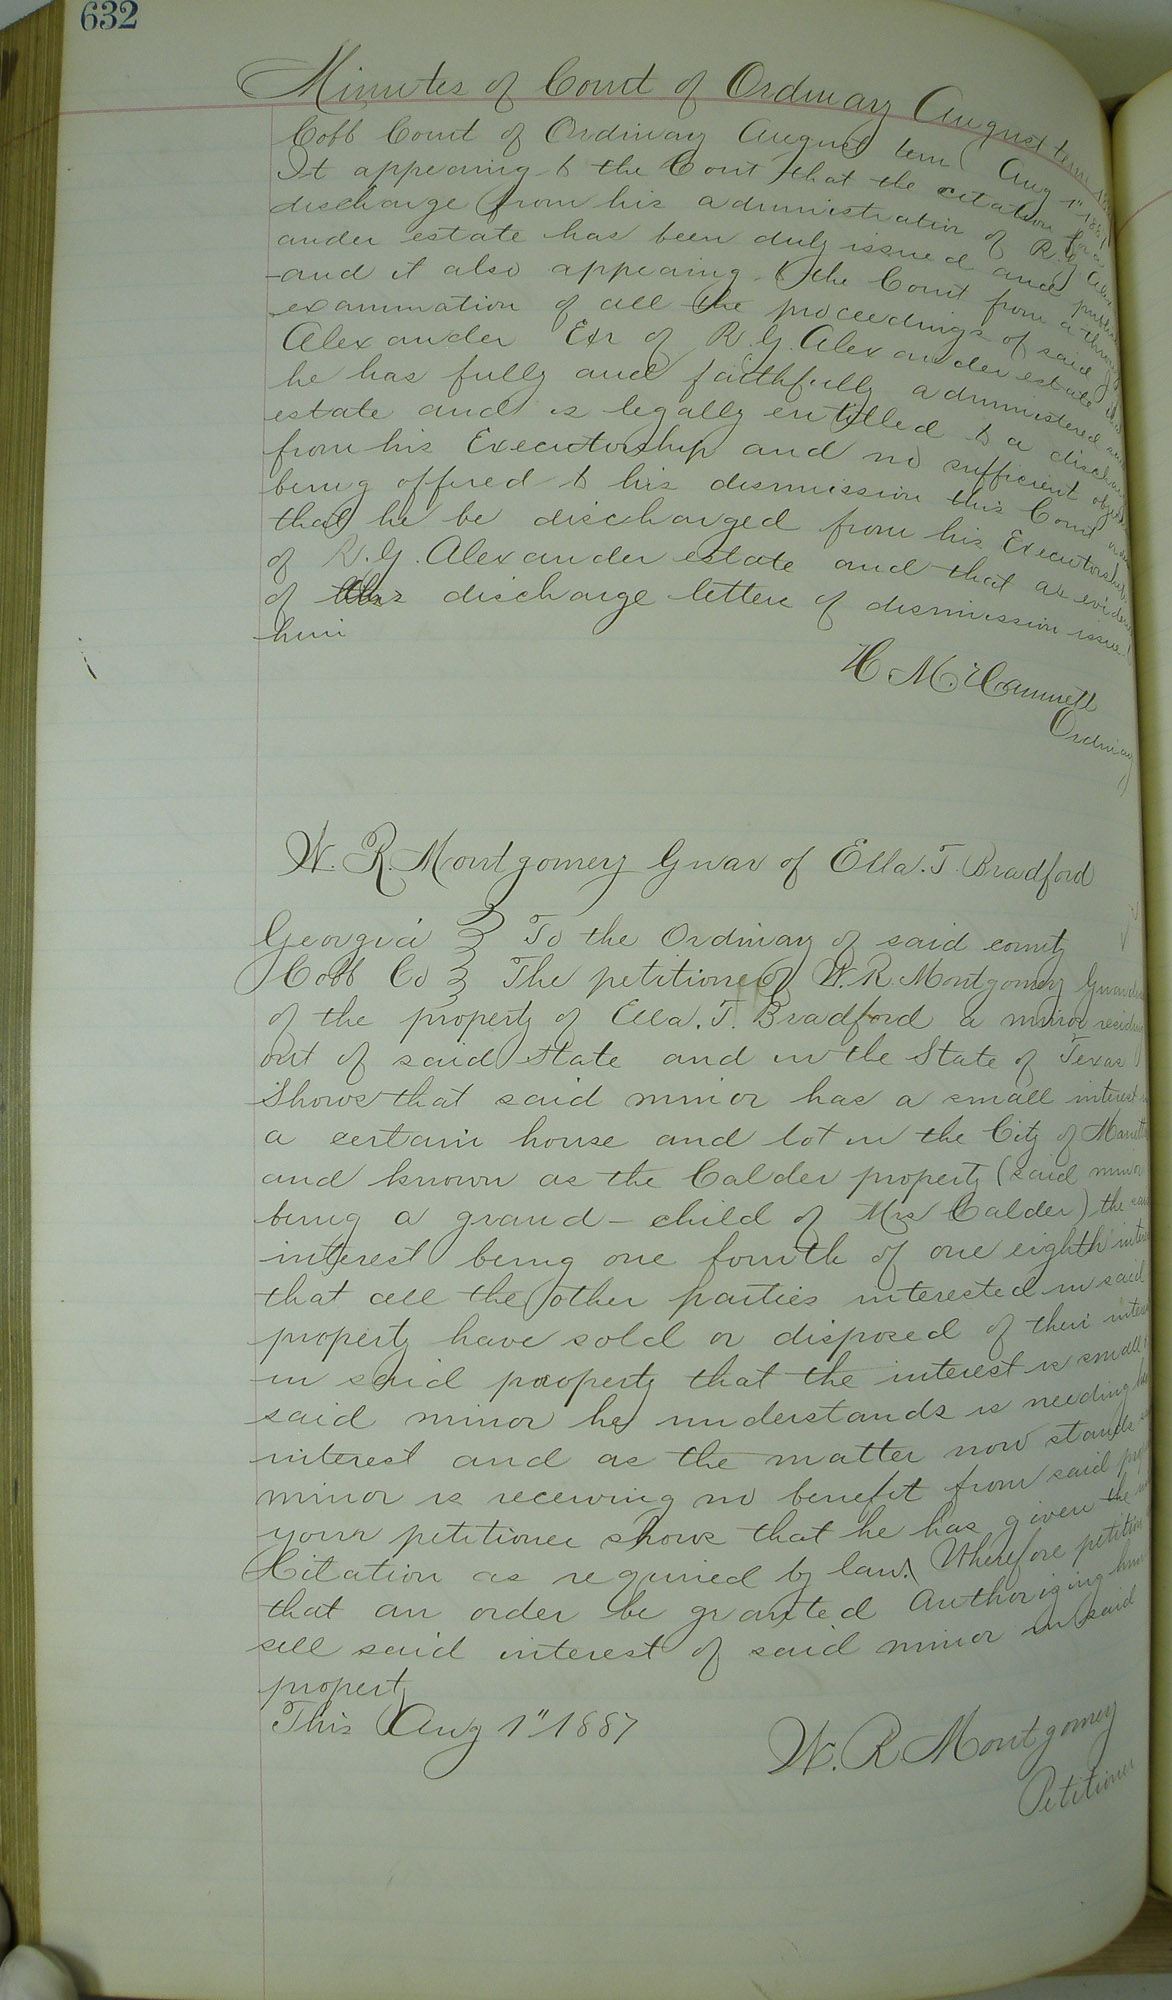 632
Minutes of Court of Ordinary August term
Cobb Court of Ordinary August term Aug 1" 1887
It appearing to the Court that the citation for a
discharge from his administration of R. G. Alex
ander estate has been duly issued and
and it also appearing to the Court from a
examination of all the proceedings of said
Alexander Exr of R. G. Alexander estate
he has fully and faithfully administered
estate and is legally entitled to a
from his Executorship and no sufficient
being offered to his dismission this Court
that he be discharged from his Executorship
of R. G. Alexander estate and that as
of this discharge letters of dismission issue
him
H M. Hammett
Ordinary
W. R. Montgomery Guar of Ella. T. Bradford
Georgia } To the Ordinary of said county
Cobb Co } The petition of W. R. Montgomery
of the property of Ella. T. Bradford a minor
out of said State and in the State of Texas
Shows that said minor has a small interest
a certain house and lot in the City of
and known as the Calder property (said minor
being a grand-child of Mrs Calder) the
interest being one fourth of one eighth
that all the other parties interested in said
property have sold or disposed of their
in said property that the interest is small
said minor he understands is needing
interest and as the matter now stands
minor is receiving no benefit from said
your petitioner shows that he has given the
Citation as required by law. Wherefore
that an order be granted Authorizing
sell said interest of said minor in said
property
This Aug 1" 1887
W. R Montgomery
Petitioner